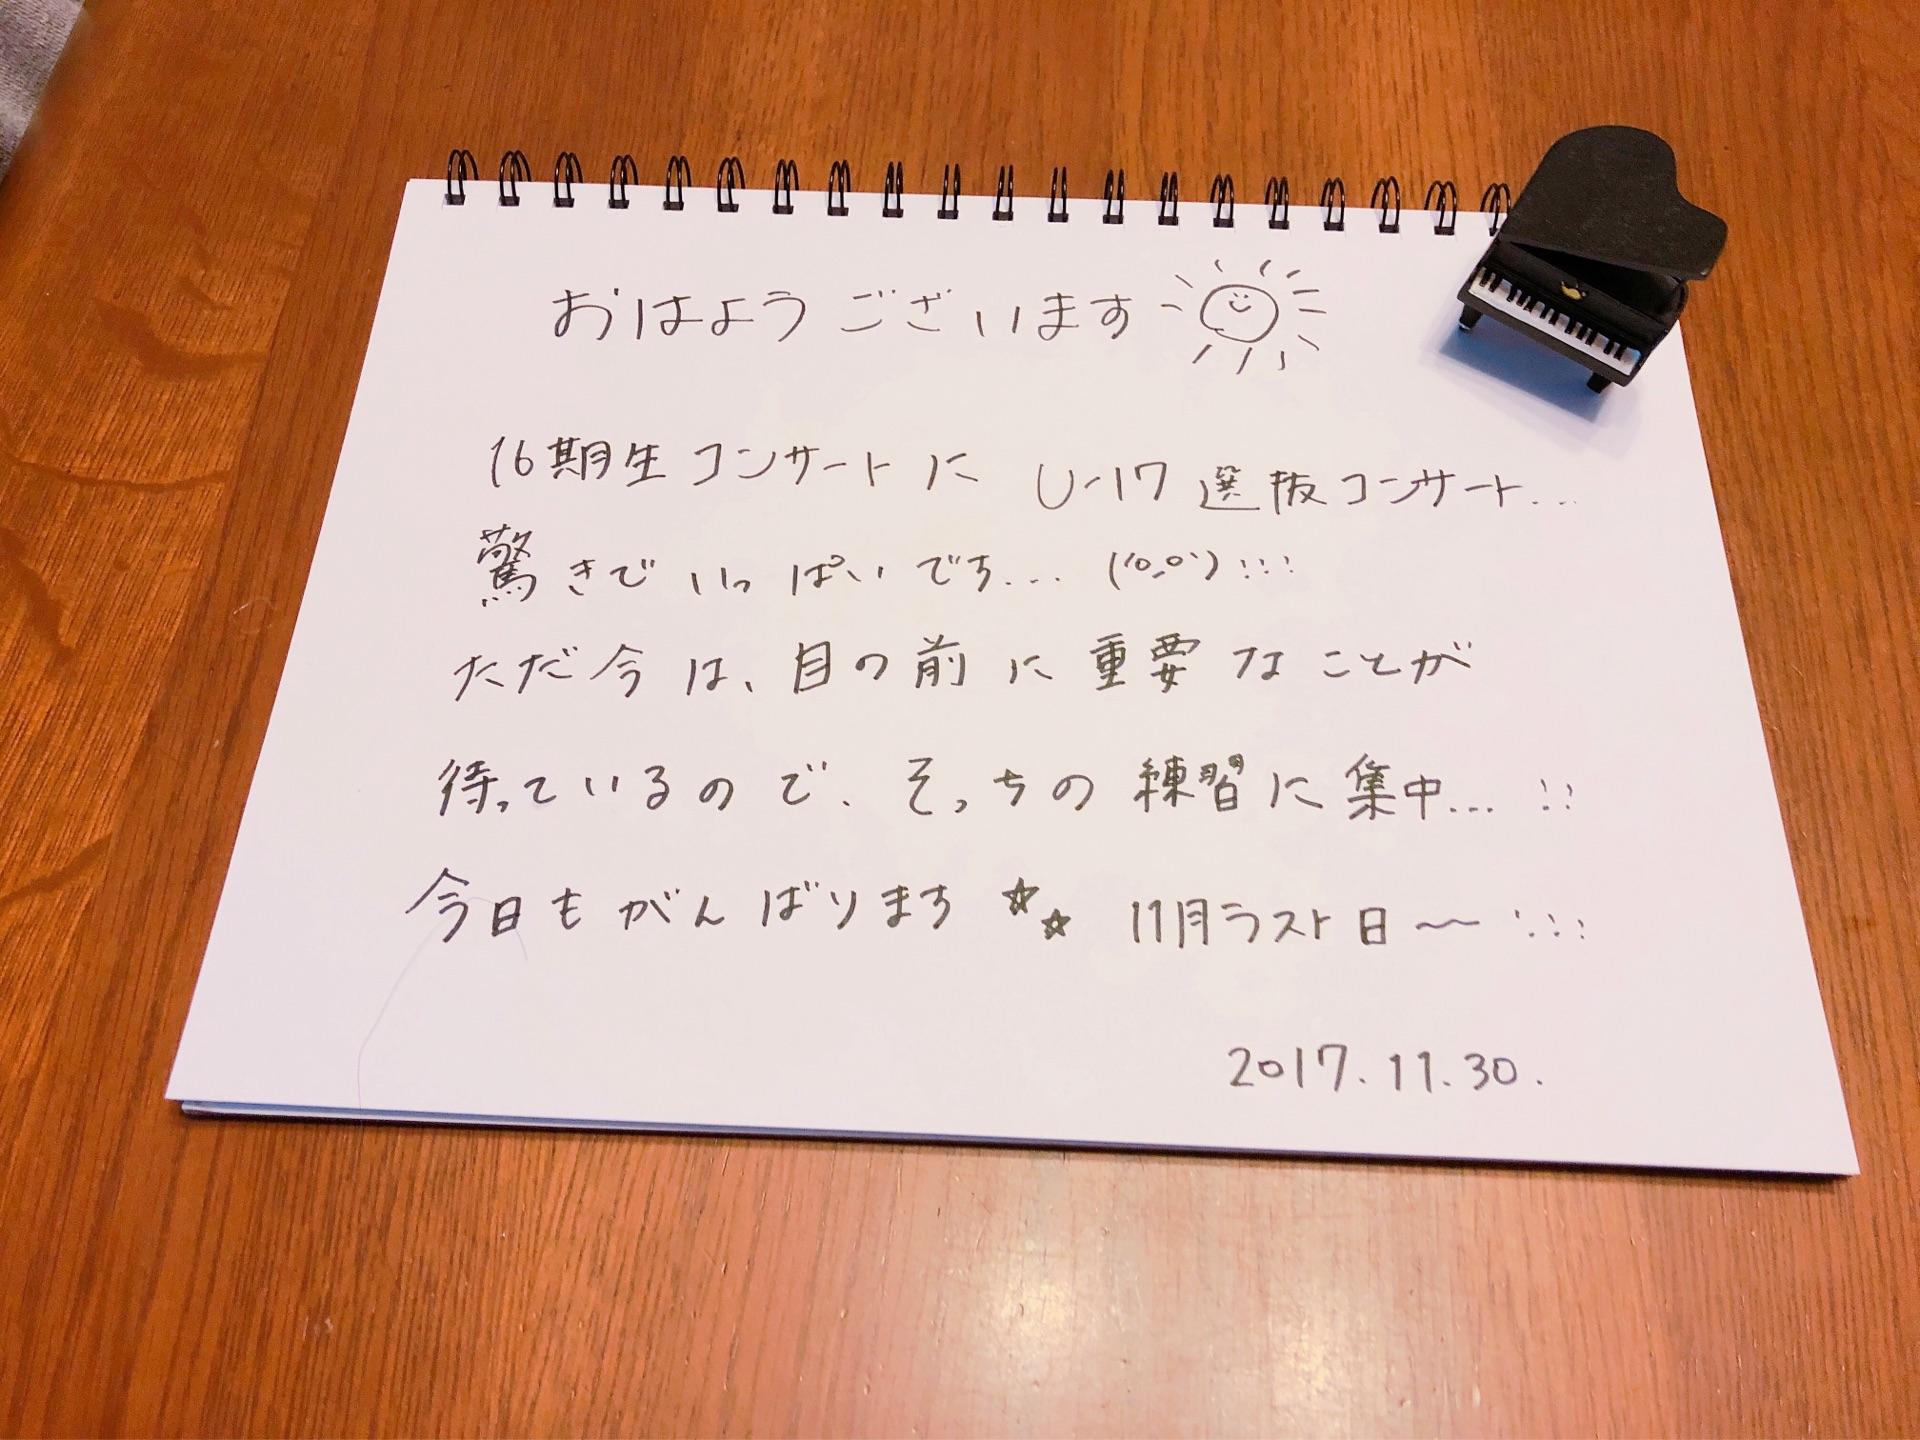 おはようございます
16期生コンサートに U-17 選抜コンサート...
驚きでいっぱいです... ('o,o`) !!!
ただ今は、目の前に重要なことが
待っているので、そっちの練習に集中... !!
今日もがんばります ☆☆ 11月ラスト日〜 !!!
2017.11.30.